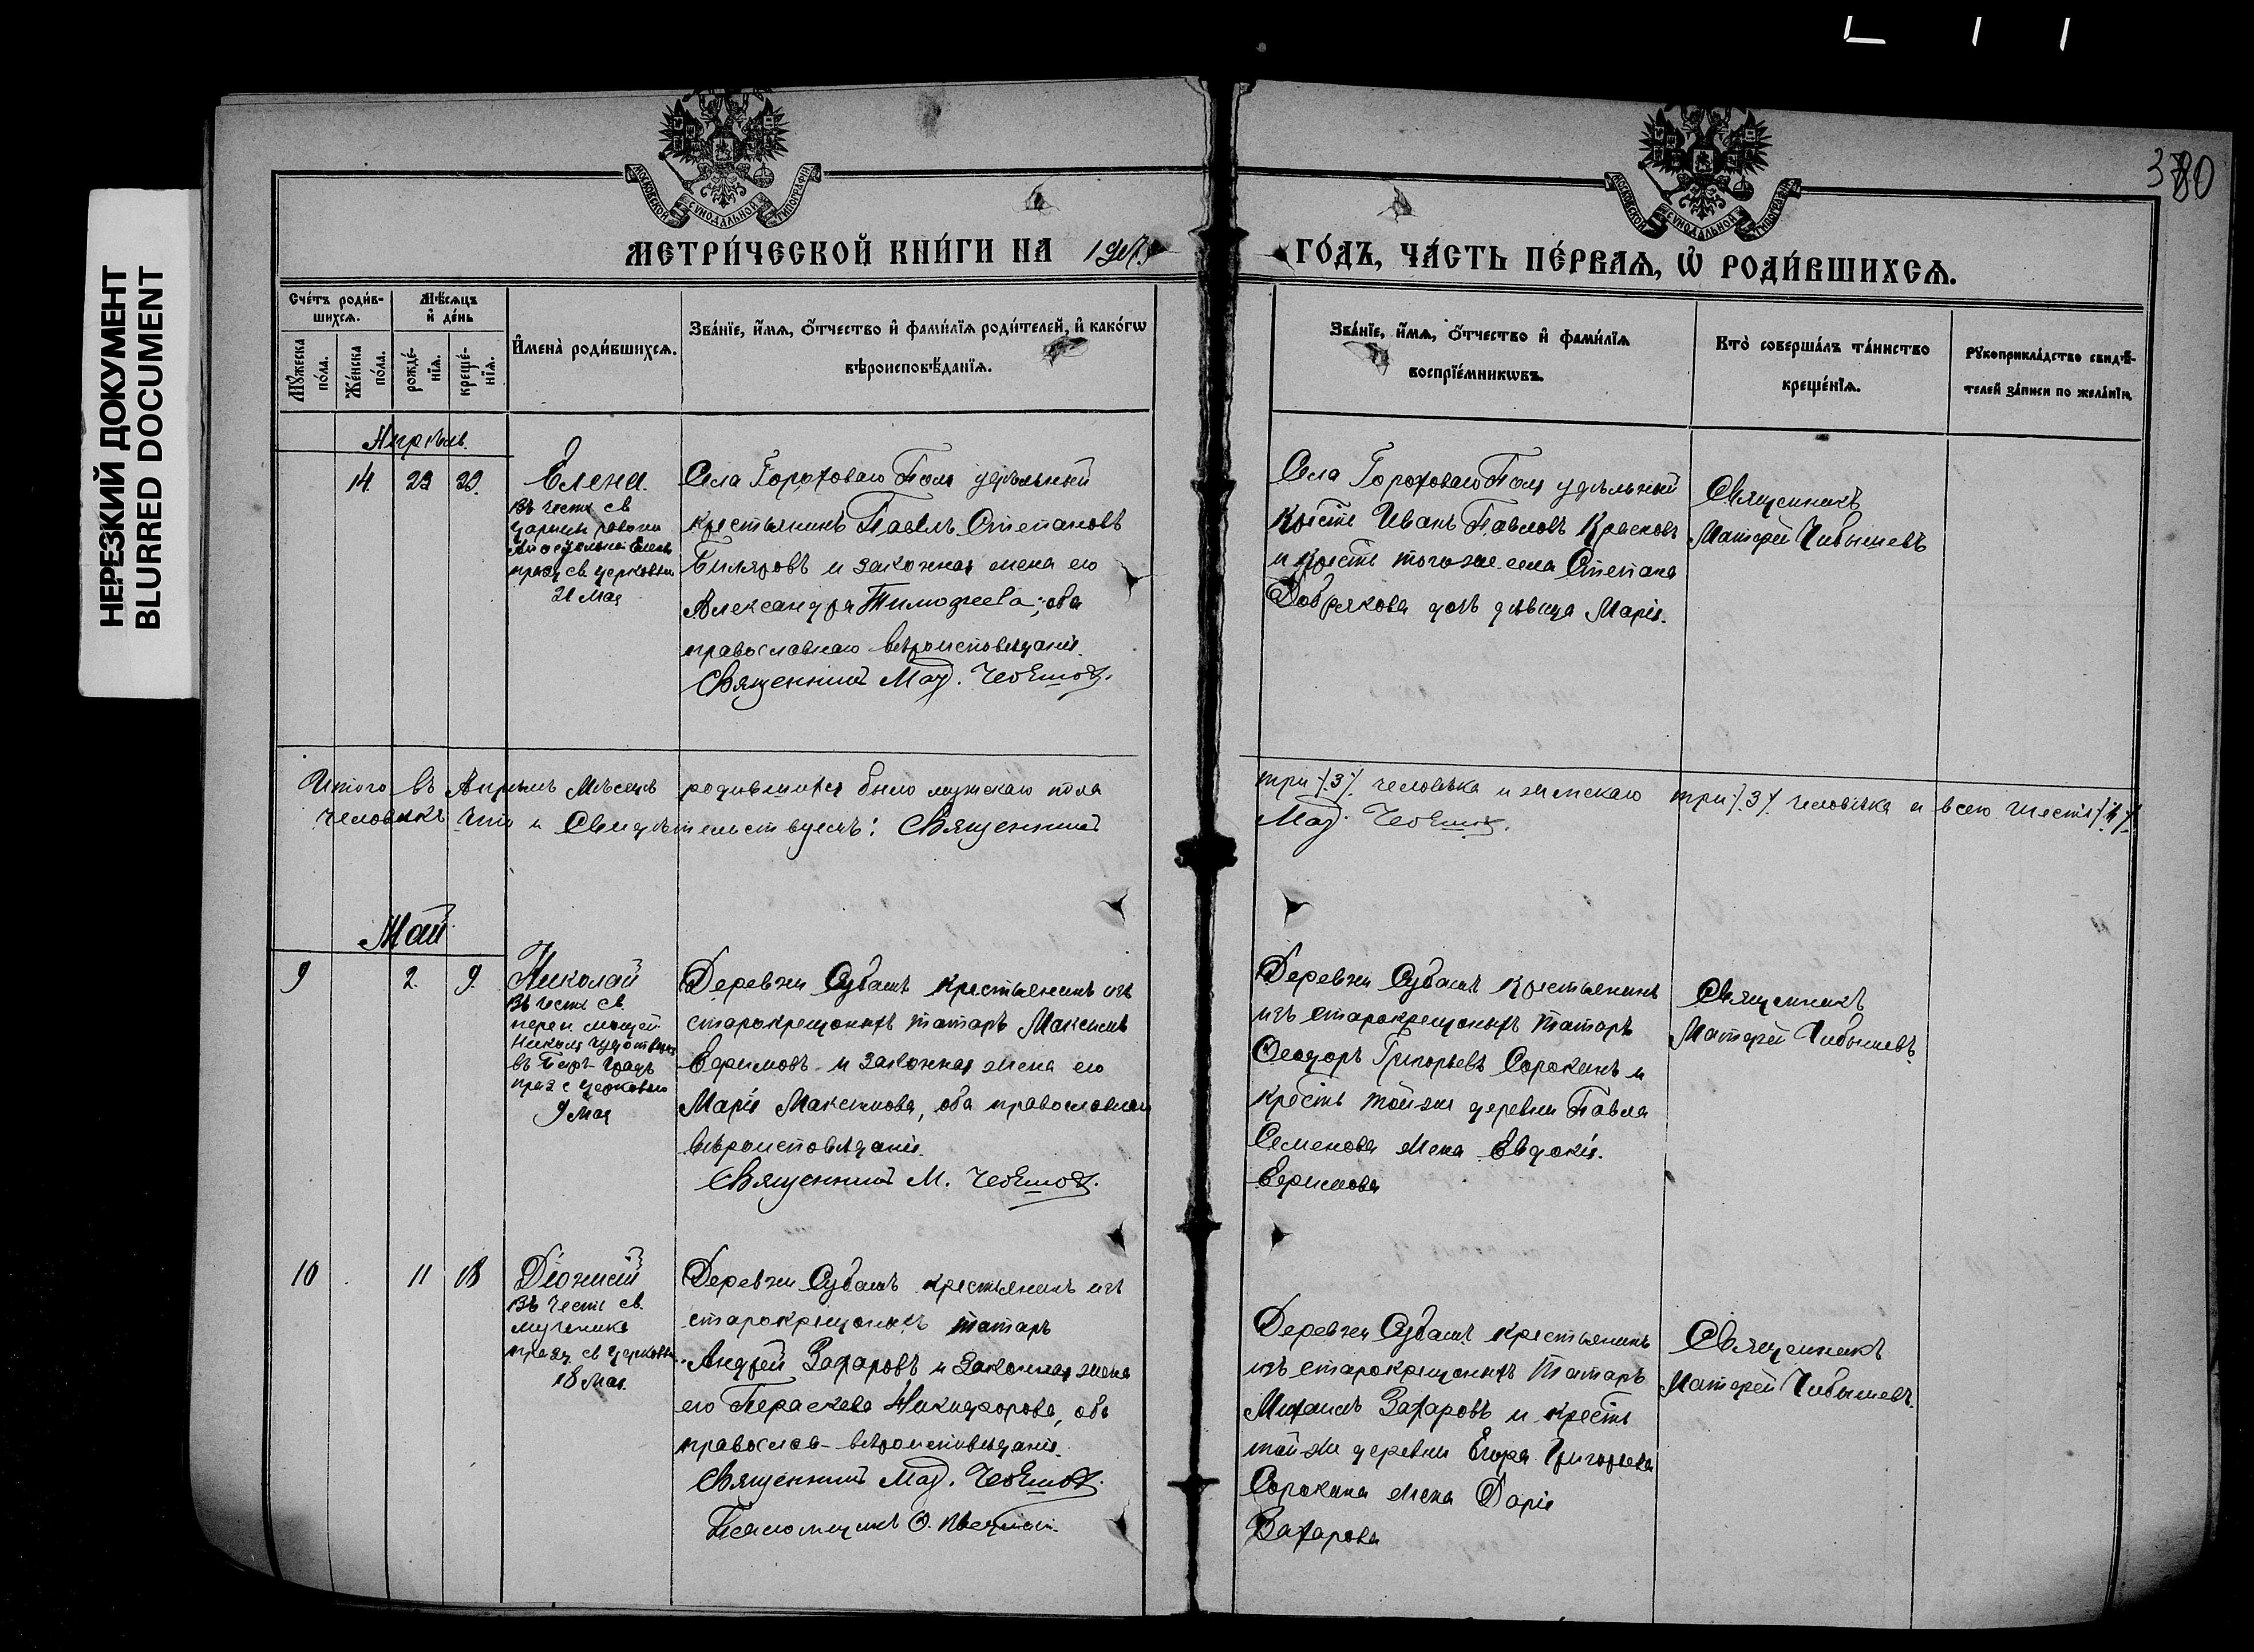 НЕРЕЗКИЙ ДОКУМЕНТ
BLURRED DOCUMENT
380
МОСКОВСКОЙ СѴНОДАЛЬНОЙ ТИПОГРАФІИ
МОСКОВСКОЙ СѴНОДАЛЬНОЙ ТИПОГРАФІИ
МЕТРИ́ЧЕСКОЙ КНИ́ГИ НА
ГО́ДЪ, ЧА́СТЬ ПЕ́РВАѦ, Ѡ҆ РОДИ́ВШИХСѦ.
Сче́тъ роди́в-
шихсѧ.
Мѣ́сѧцъ
и҆ де́нь
Мꙋ́жеска
по́ла.
Же́нска
по́ла.
рожде́-
нїѧ.
креще́-
нїѧ.
И҆мена̀ роди́вшихсѧ.
Зва́нїе, и҆́мѧ, о҆́тчество и҆ фами́лїѧ роди́телей, и҆ како́гѡ
вѣроисповѣ́данїѧ.
Зва́нїе, и҆́мѧ, о҆́тчество и҆ фами́лїѧ
воспрїе́мникѡвъ.
Кто̀ соверша́лъ та́инство
креще́нїѧ.
Рꙋкоприкла́дство свидѣ́-
телей за́писи по жела́нїю.
Апрѣль.
14 23 29.
Елена.
Въ честь св
царицы равноап
Елены
празд св. церковью
21 Мая
Села Гороховаго Поля удѣльный
крестьянинъ Павелъ Степановъ
и законная жена его
Александра Тимофеева, оба
православнаго вѣроисповѣданія.
Священникъ Мат. Чебышев.
Села Гороховаго Поля удѣльный
крест Иванъ Павловъ Красковъ
и крест того же села Степана
Добрякова дочь дѣвица Марія.
Священникъ
Матфей Чибышевъ
Итого въ Апрѣлѣ Мѣсяцѣ родившихся было мужскаго пола три /.3/. человѣка и женскаго три /.3/. человѣка а всего шесть
человѣкъ Что и Свидѣтельствуемъ: Священникъ Мат. Чебышев.
Май
9 2. 9.
Николай
Въ честь св.
перен. мощей
Николая чудотворца
въ Градъ
празд с церковью
9 Мая
Деревни Субашъ крестьянинъ изъ
старокрещоныхъ татаръ Максимъ
Ефимовъ и законная жена его
Марія Максимова, оба православнаго
вѣроисповѣданія.
Священникъ М. Чебышев.
Деревни Субашъ крестьянинъ
изъ старокрещоныхъ татаръ
Феодоръ Григорьевъ Сорокинъ и
крест той же деревни Павла
Семенова жена Евдокія
Ефимова
Священникъ
Матфей Чибышевъ.
10 11 18
Діонисій
Въ честь св.
мученика
празд св церковью
18 Мая.
Деревни Субашъ крестьянинъ изъ
старокрещоныхъ татаръ
Андрей Захаровъ и законная жена
его Параскева Никифорова, оба
правосл ав- вѣроисповѣданія.
Священникъ Мат. Чебышев.
Псаломщикъ
Деревни Субашъ крестьянинъ
изъ старокрещоныхъ татаръ
Михаилъ Захаровъ и крест
той же деревни Егора Григорьева
Сорокина жена Дарія
Захарова
Священникъ
Матфей Чибышевъ.